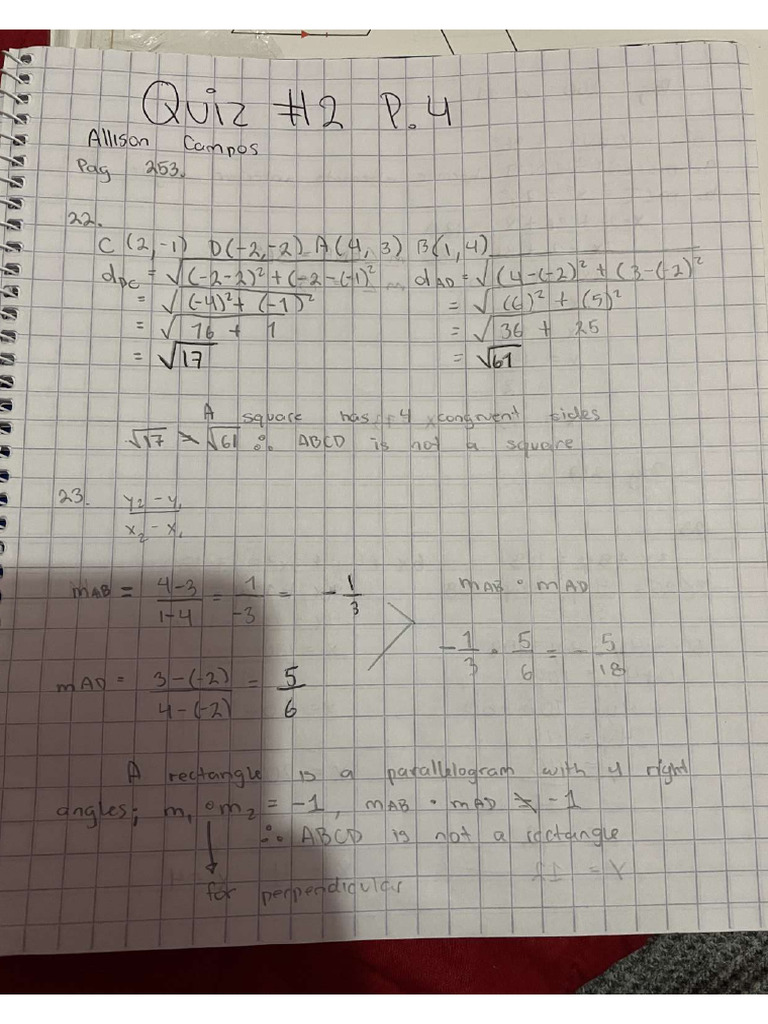 Quiz #2 P.4
Allison Campos
Pag 253.
22.
C (2,-1) D(-2,-2) A(4,3) B(1,4)
dDC = √(-2-2)² + (-2-(-1)² dAD = √(4-(-2)² + (3-(-2)²
= √(-4)² + (-1)² = √(6)² + (5)²
= √16 + 1 = √36 + 25
= √17 = √61
A square has 4 congruent sides
√17 ≠ √61 ∴ ABCD is not a square
23. y₂ - y₁ / x₂ - x₁
mAB = 4-3 / 1-4 = 1 / -3 = - 1/3 mAB · mAD
- 1/3 · 5/6 = - 5/18
mAD = 3-(-2) / 4-(-2) = 5/6
A rectangle is a parallelogram with 4 right
angles; m₁ · m₂ = -1, mAB · mAD ≠ -1
∴ ABCD is not a rectangle
for perpendicular